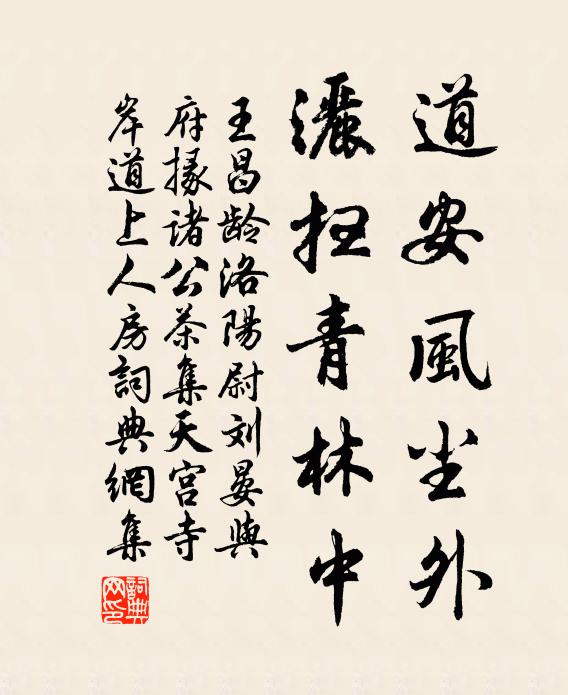 道安風尘外
灑扫青林中
王昌龄洛陽尉刘晏與
府掾諸公茶集天宫寺
岸道上人房詞典網集
詞典网印